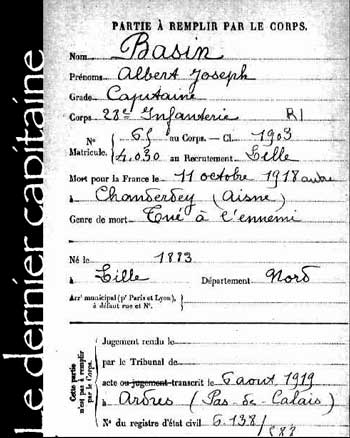 Le dernier capitaine
PARTIE À REMPLIR PAR LE CORPS.
Nom Basin
Prénoms Albert Joseph
Grade Capitaine
Corps 28e Infanterie RI
N° 65 au Corps. — Cl. 1903
Matricule. 4.030 au Recrutement Lille
Mort pour la France le 11 octobre 1918
à (Aisne)
Genre de mort Tué à l'ennemi
Né le 1883
à Lille Département Nord
Arrt municipal (pr Paris et Lyon),
à défaut rue et N°.
Cette partie
n'est pas à remplir
par le Corps.
Jugement rendu le
par le Tribunal de
acte ou jugement transcrit le 6 aout 1919
à Ardres (Pas-de-Calais)
N° du registre d'état civil